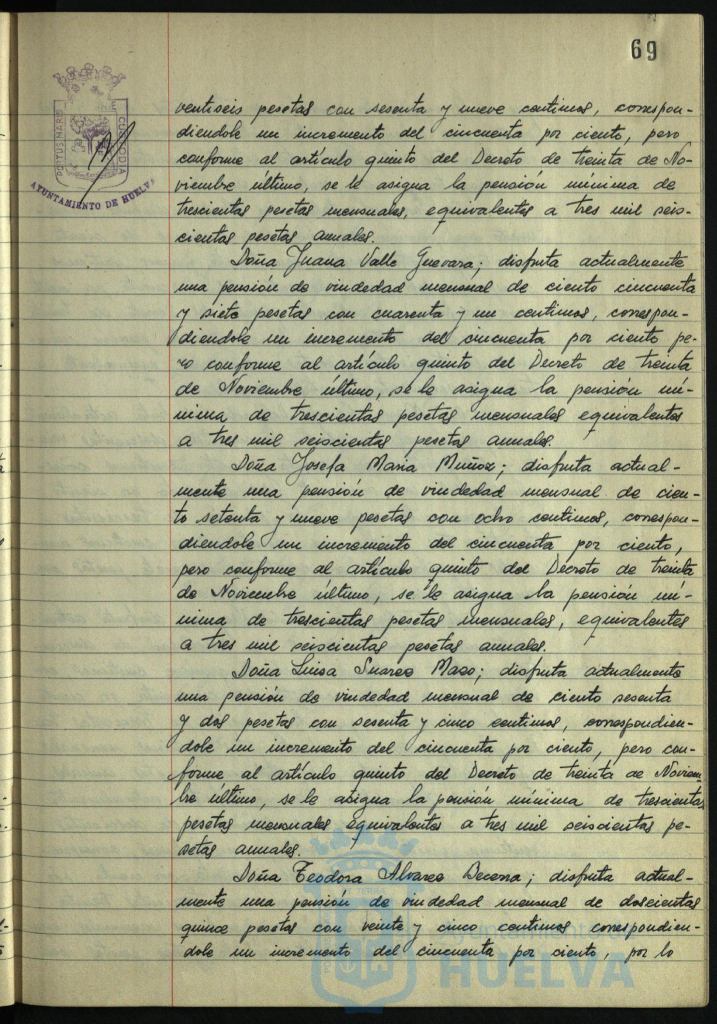 69
PORTUS MARIS
CUSTODIA
AYUNTAMIENTO DE HUELVA
ventiseis pesetas con sesenta y nueve centimos, correspon-
diendole un incremento del cincuenta por ciento, pero
conforme al artículo quinto del Decreto de treinta de No-
viembre último, se le asigna la pensión mínima de
trescientas pesetas mensuales, equivalentes a tres mil seis-
cientas pesetas anuales.
Doña Juana Valle Guevara; disfruta actualmente
una pensión de viudedad mensual de ciento cincuenta
y siete pesetas con cuarenta y un centimos, correspon-
diendole un incremento del cincuenta por ciento pe-
ro conforme al artículo quinto del Decreto de treinta
de Noviembre último, se le asigna la pensión mí-
nima de trescientas pesetas mensuales equivalentes
a tres mil seiscientas pesetas anuales.
Doña Josefa Maria Muñoz; disfruta actual-
mente una pensión de viudedad mensual de cien-
to setenta y nueve pesetas con ocho centimos, correspon-
diendole un incremento del cincuenta por ciento,
pero conforme al artículo quinto del Decreto de treinta
de Noviembre último, se le asigna la pensión mí-
nima de trescientas pesetas mensuales, equivalentes
a tres mil seiscientas pesetas anuales.
Doña Luisa Suarez Mazo; disfruta actualmente
una pensión de viudedad mensual de ciento sesenta
y dos pesetas con sesenta y cinco centimos, correspondien-
dole un incremento del cincuenta por ciento, pero con-
forme al artículo quinto del Decreto de treinta de Noviem-
bre último, se le asigna la pensión mínima de trescientas
pesetas mensuales equivalentes a tres mil seiscientas pe-
setas anuales.
Doña Teodora Alvarez Becerra; disfruta actual-
mente una pensión de viudedad mensual de doscientas
quince pesetas con veinte y cinco centimos correspondien-
dole un incremento del cincuenta por ciento, por lo
HUELVA